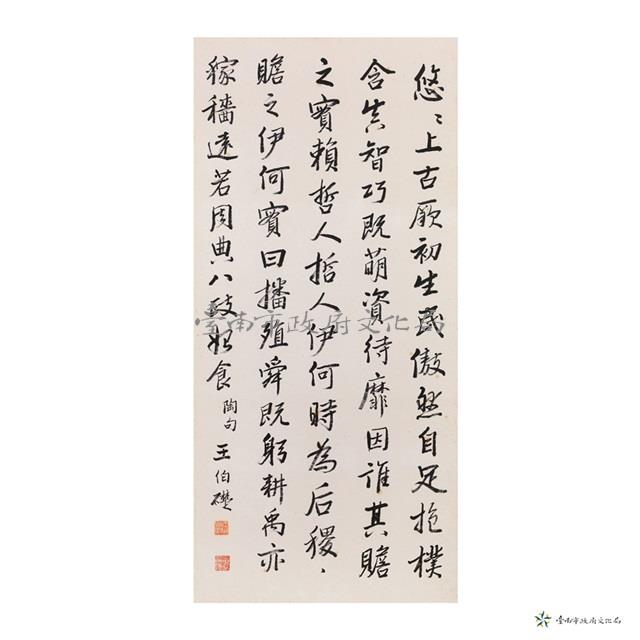 悠〻上古厥初生民傲然自足抱樸
含真智巧既萌資待靡因誰其贍
之實賴哲人哲人伊何時為后稷〻
贍之伊何實曰播殖舜既躬耕禹亦
稼穡遠若周典八政始食
陶句 王伯礎
臺南市政府文化局
臺南市政府文化局